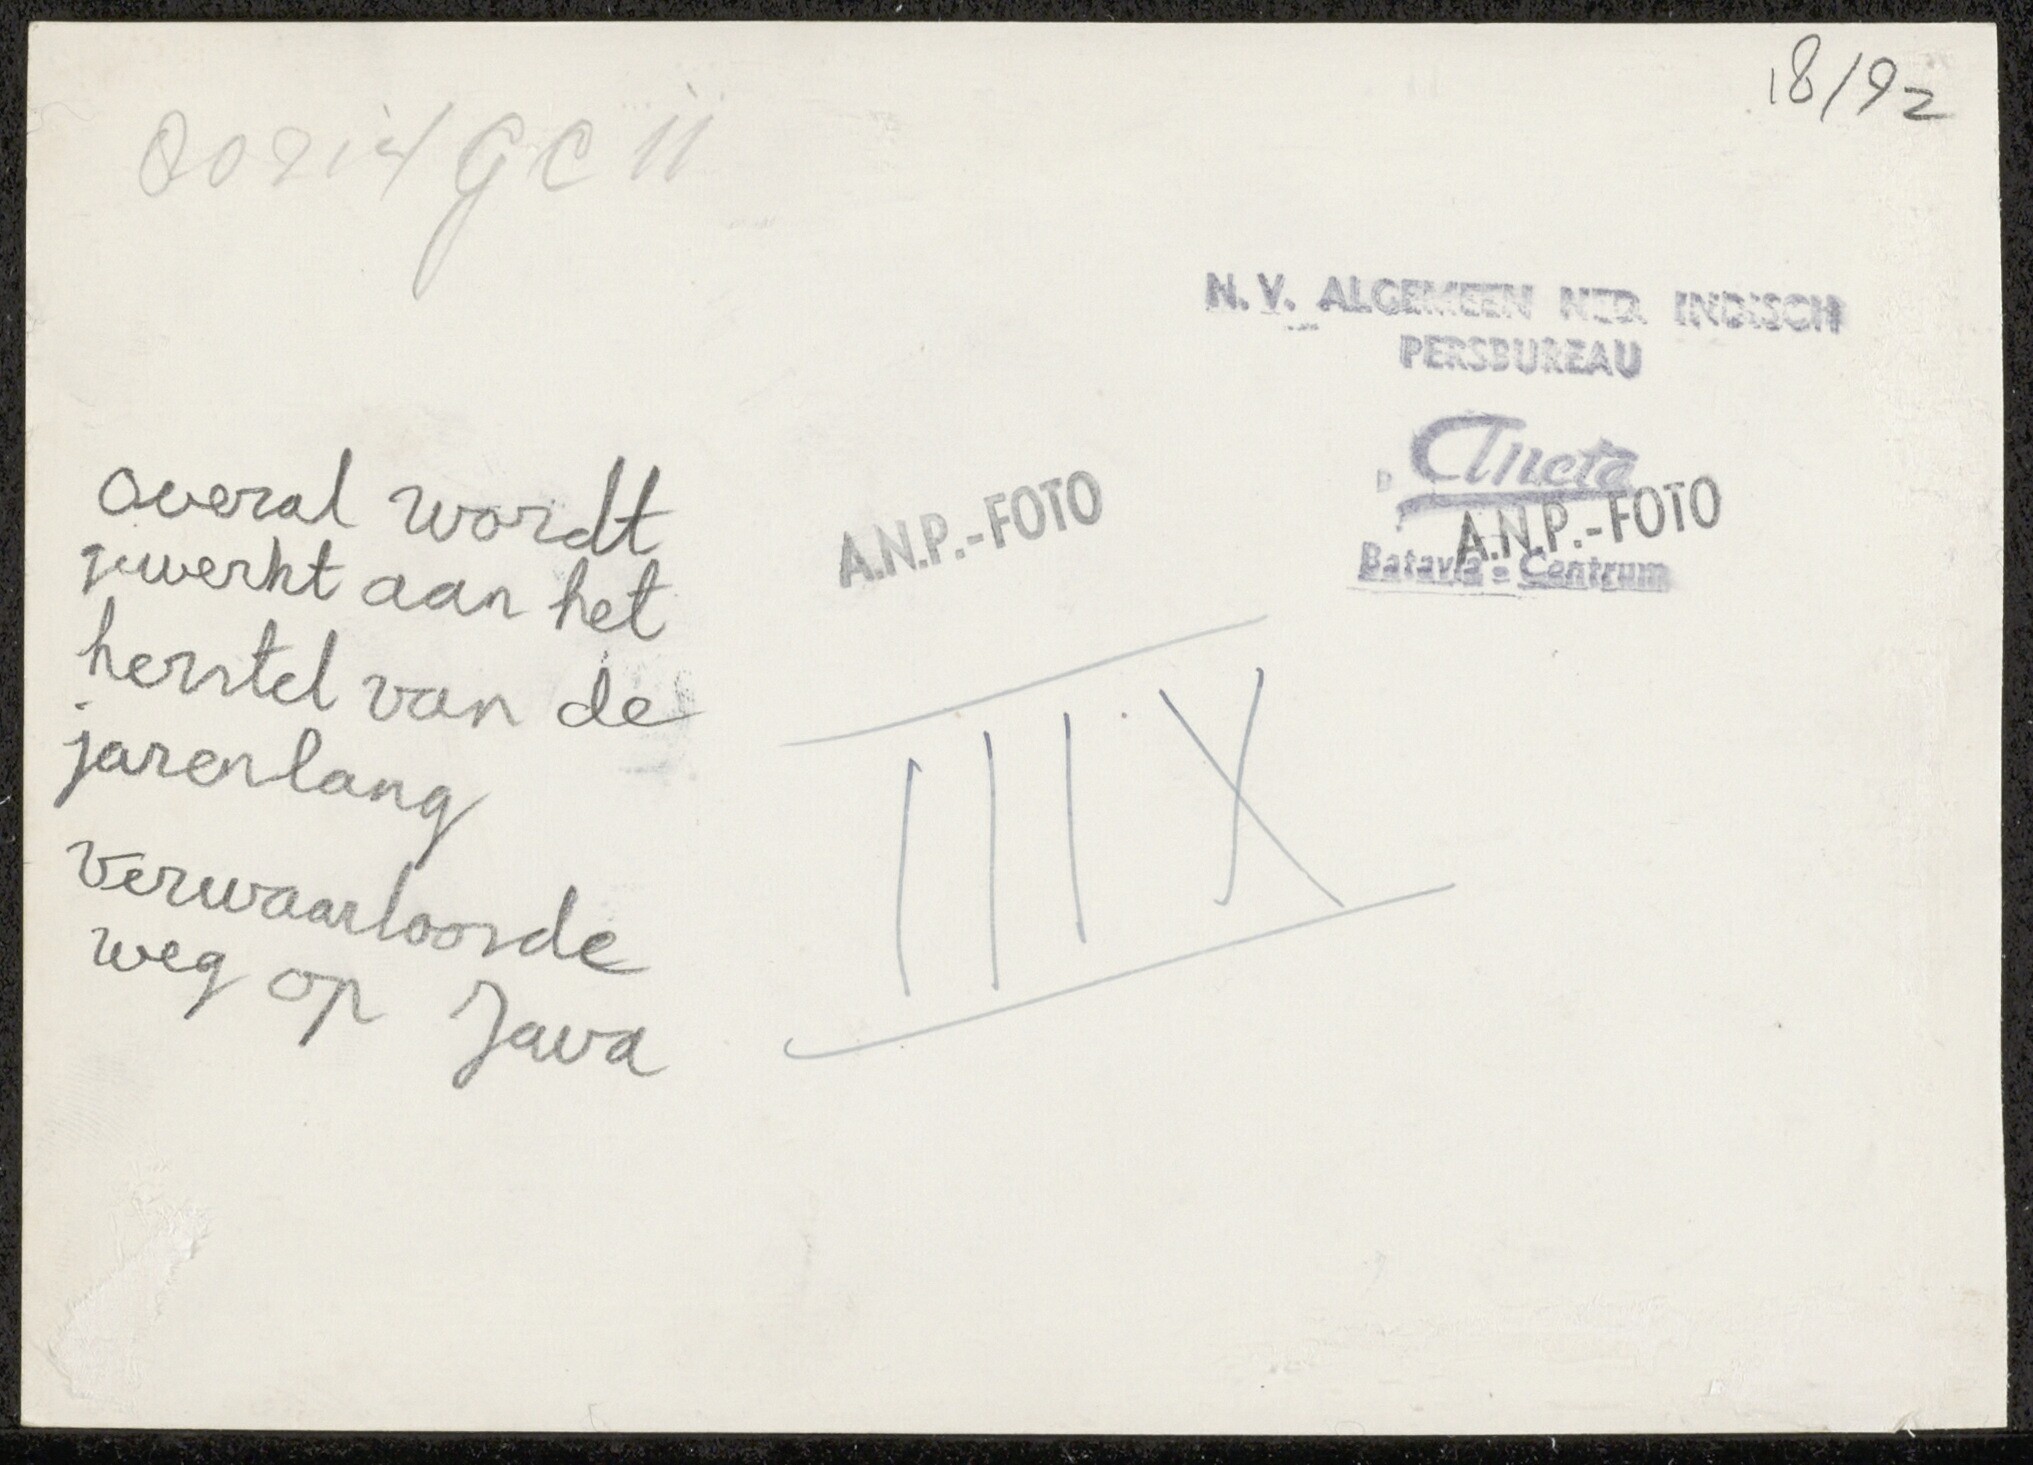 18/92
N.V. ALGEMEEN NED. INDISCH
PERSBUREAU
Aneta
Batavia - Centrum
A.N.P.-FOTO
A.N.P.-FOTO
overal wordt
gewerkt aan het
herstel van de
jarenlang
verwaarloosde
weg op Java
IIIX